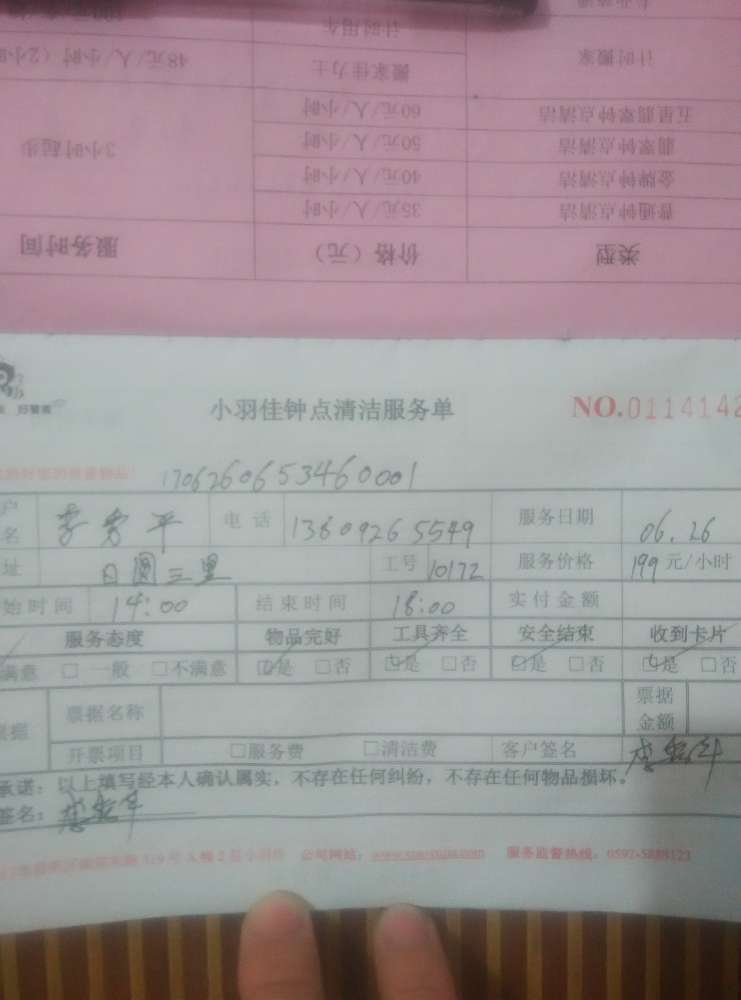 专业清洗
计时搬家 计时用车
搬家佳力士 48元/人/小时（2小时
五星翡翠钟点清洁 60元/人/小时
翡翠钟点清洁 50元/人/小时 3小时起步
金牌钟点清洁 40元/人/小时
普通钟点清洁 35元/人/小时
类型 价格（元） 服务时间
小羽佳钟点清洁服务单 NO.0114142
1706260653460001
户名 电话 13809265549 服务日期 06.26
址 日圆三里 工号 10172 服务价格 199 元/小时
始时间 14:00 结束时间 18:00 实付金额
服务态度 物品完好 工具齐全 安全结束 收到卡片
满意 □ 一般 □不满意 □是 □否 □是 □否 □是 □否 □是 □否
票据名称 票据金额
开票项目 □服务费 □清洁费 客户签名
承诺：以上填写经本人确认属实，不存在任何纠纷，不存在任何物品损坏。
签名：
公司网站： 服务监督热线：0592-5888123